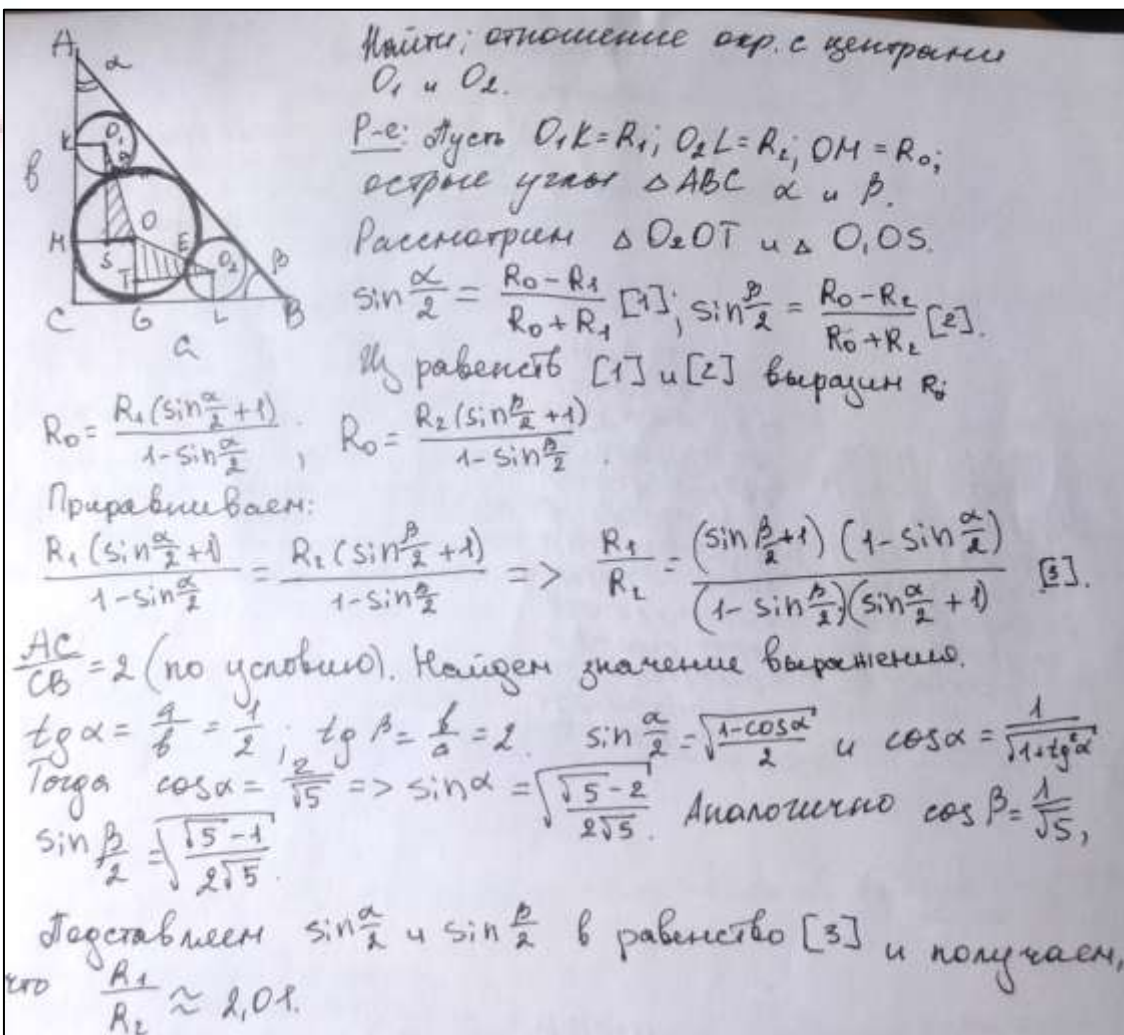 Найти: отношение окр. с центрами
O₁ и O₂.
Р-е: Пусть O₁K=R₁; O₂L=R₂; OM=R₀;
острые углы △ABC α и β.
Рассмотрим △O₂OT и △O₁OS.
sin α/2 = (R₀-R₁)/(R₀+R₁) [1]; sin β/2 = (R₀-R₂)/(R₀+R₂) [2].
Из равенств [1] и [2] выразим R₀:
A
α
K
O₁
в
O
M
S
E
T
O₂
β
C
G
L
B
a
R₀ = R₁(sin α/2 + 1)/(1 - sin α/2), R₀ = R₂(sin β/2 + 1)/(1 - sin β/2).
Приравниваем:
R₁(sin α/2 + 1)/(1 - sin α/2) = R₂(sin β/2 + 1)/(1 - sin β/2) => R₁/R₂ = (sin β/2 + 1)(1 - sin α/2)/((1 - sin β/2)(sin α/2 + 1)) [3].
AC/CB = 2 (по условию). Найдем значение выражения.
tg α = a/b = 1/2; tg β = b/a = 2. sin α/2 = √((1-cos α)/2) и cos α = 1/√(1+tg²α)
Тогда cos α = 2/√5 => sin α = √((√5-2)/(2√5)). Аналогично cos β = 1/√5,
sin β/2 = √((√5-1)/(2√5)).
Подставляем sin α/2 и sin β/2 в равенство [3] и получаем,
что R₁/R₂ ≈ 2,01.